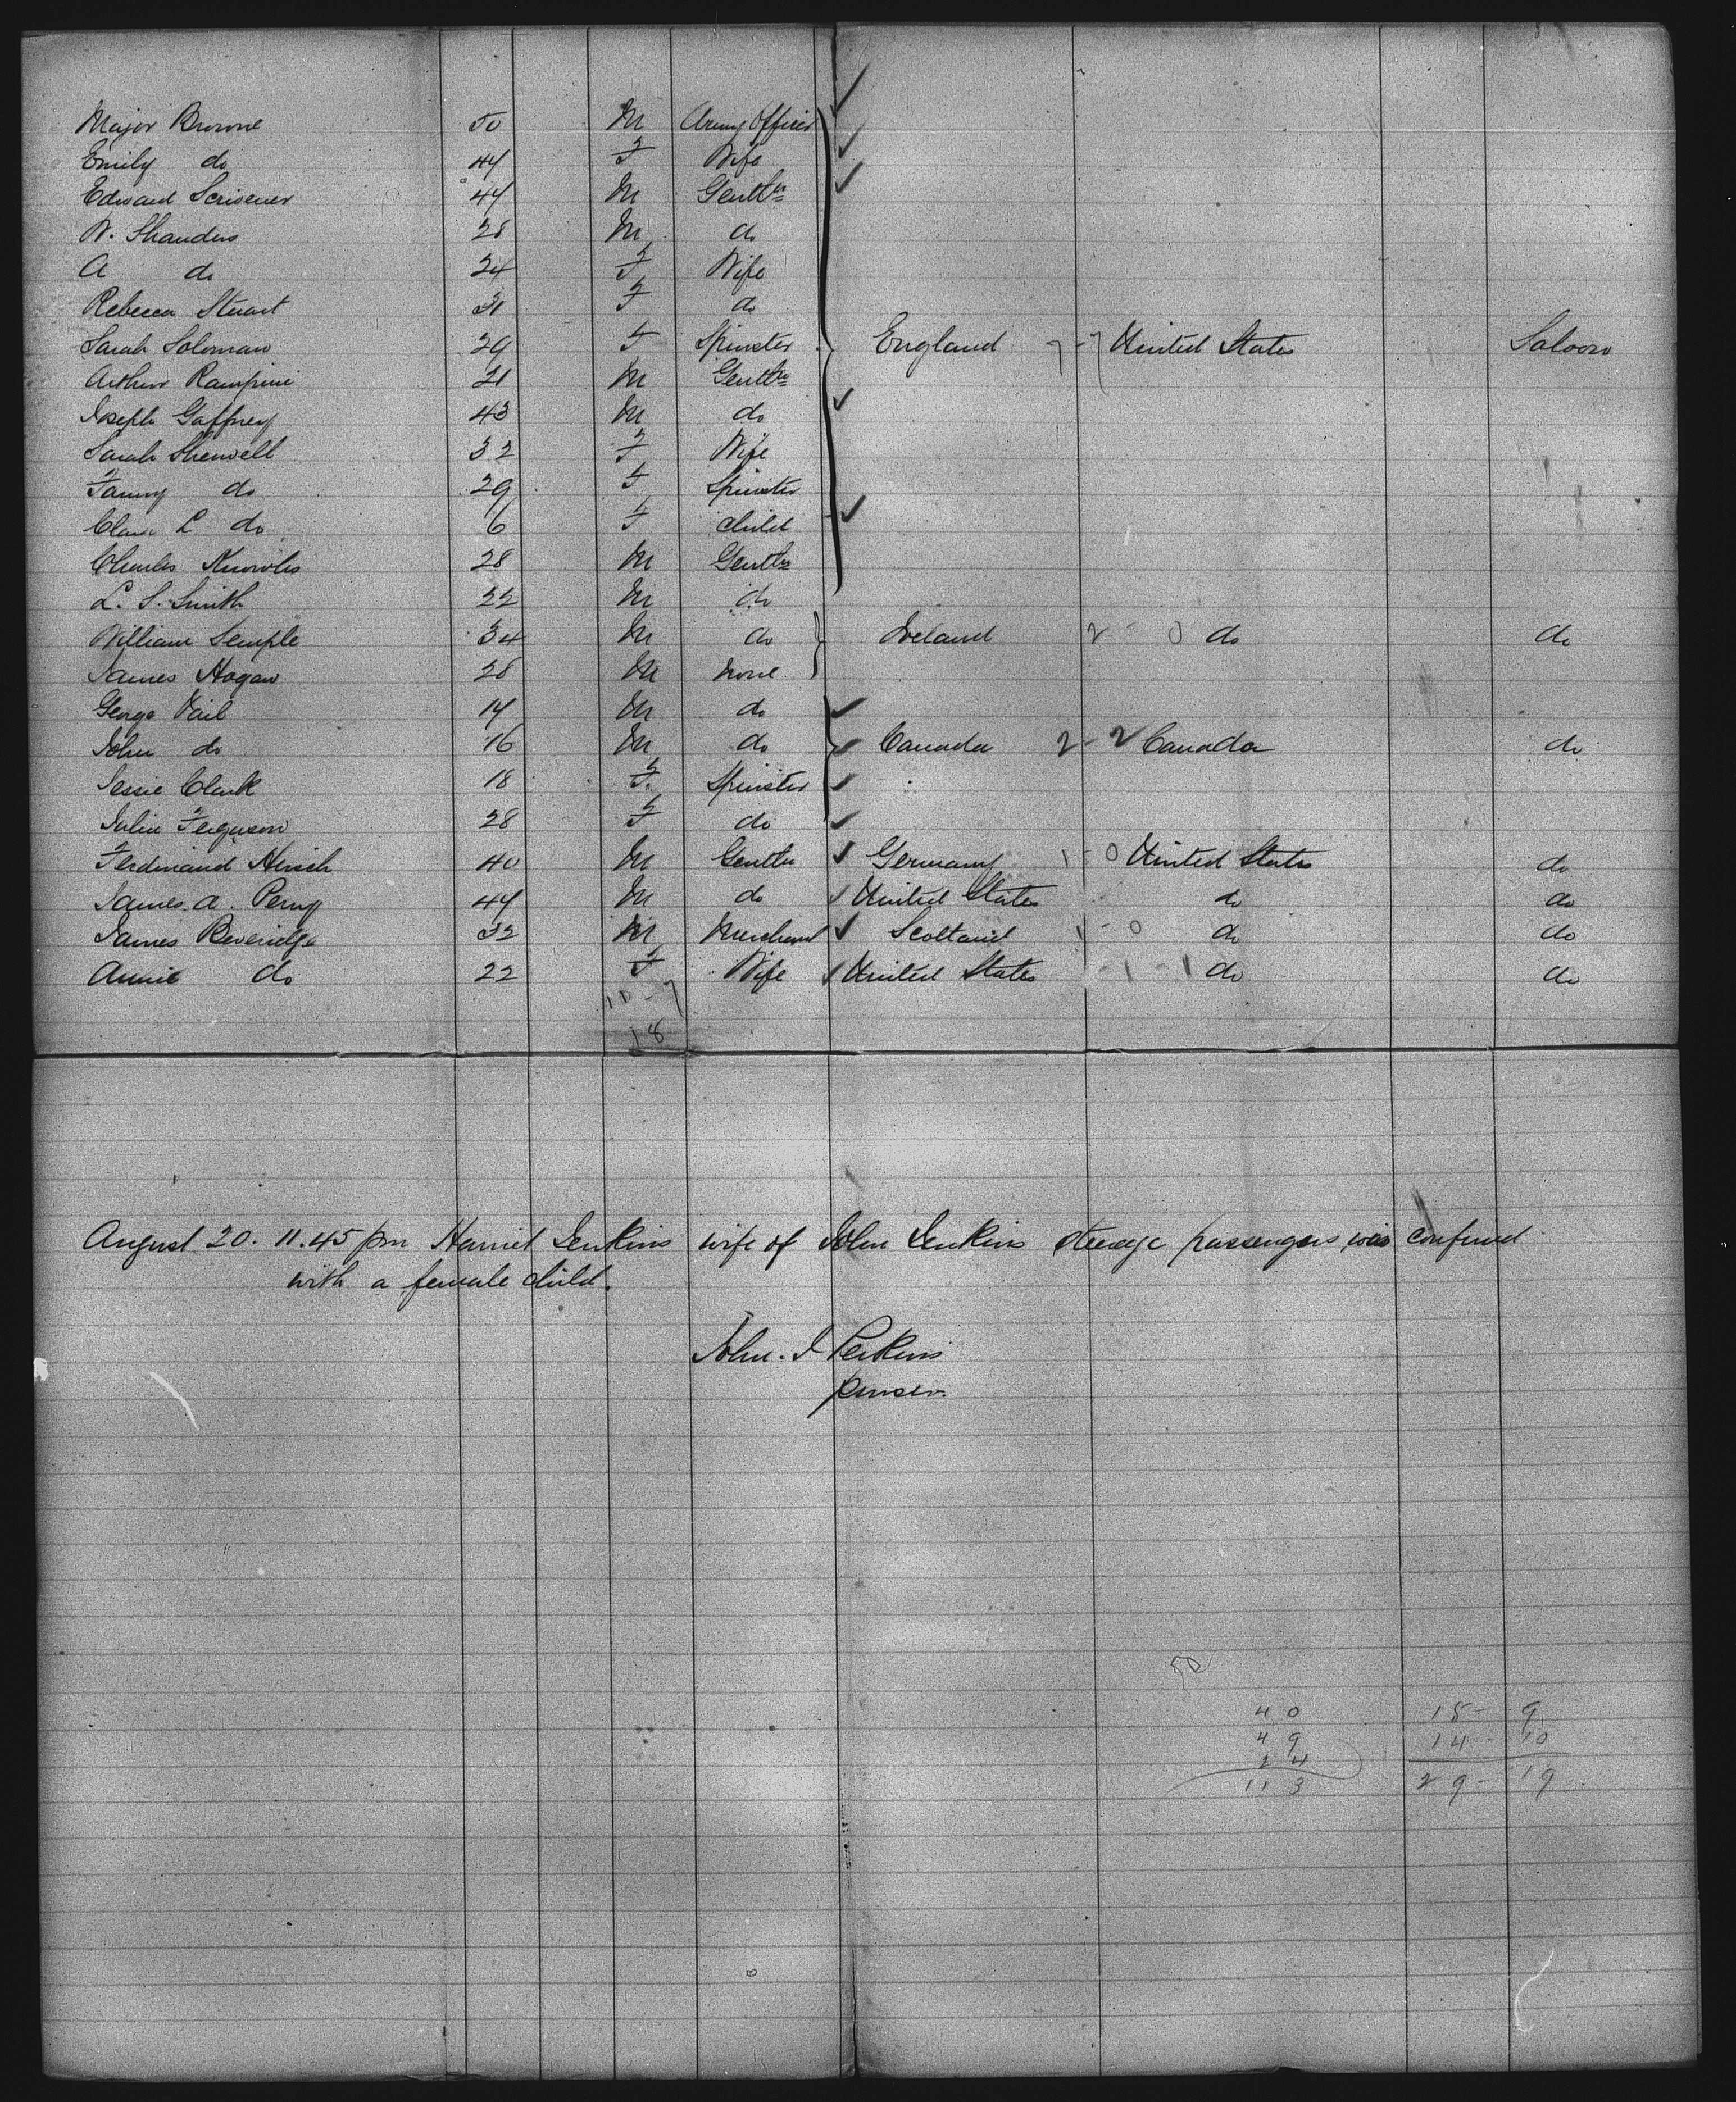 Major Browne 50 M Army Officer
Emily do 44 F Wife
Edward Scrivener 44 M Gentln
W. Shanders 28 M do
A do 24 F Wife
Rebecca Stuart 31 F do
Sarah Solomon 29 F Spinster England 7-7 United States Saloon
Arthur Rampini 21 M Gentln
Joseph Gaffney 43 M do
Sarah Shenwell 32 F Wife
Fanny do 29 F Spinster
Clara L do 6 F child
Charles Knowles 28 M Gentln
L. S. Smith 22 M do
William Semple 34 M do Ireland 2-0 do do
James Hogan 28 M none
George Vail 14 M do
John do 16 M do Canada 2-2 Canada do
Jessie Clark 18 F. Spinster
Julia Ferguson 28 F do
Ferdinand Hirsch 40 M Gentln Germany 1-0 United States do
James. A. Perry 44 M do United States do do
James Beveridge 32 M Merchant Scotland 1-0 do do
Annie do 22 F Wife United States -1-1 do do
10-7
18
August 20. 11.45 pm Harriet Jenkins wife of John Jenkins steerage passengers was confined
with a female child.
John. J Perkins
purser.
50
40 15- 9
49 14- 10
24
113 29- 19